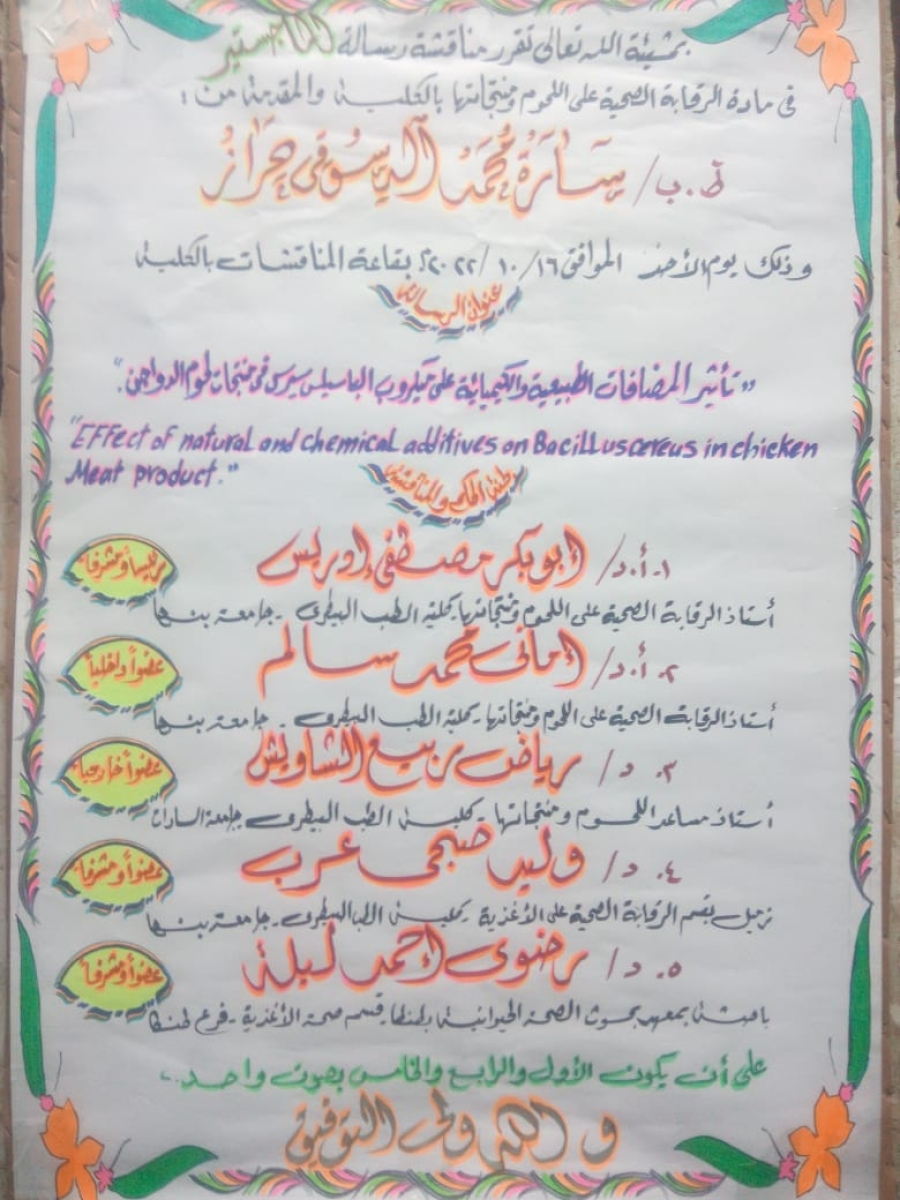 بمشيئة الله تعالى تقرر مناقشة رسالة الماجستير
فى مادة الرقابة الصحية على اللحوم ومنتجاتها بالكلية والمقدمة من :
ط.ب/ سارة محمد الدسوقى حراز
وذلك يوم الأحد الموافق ١٦/ ١٠/ ٢٠٢٢م بقاعة المناقشات بالكلية
عنوان الرسالة
"تأثير المضافات الطبيعية والكيميائية على ميكروب الباسيلس سيرس فى منتجات لحوم الدواجن."
"Effect of natural and chemical additives on Bacillus cereus in chicken
Meat product."
لجنة الحكم والمناقشة
١- أ.د/ أبوبكر مصطفى إدريس رئيساً ومشرفاً
أستاذ الرقابة الصحية على اللحوم ومنتجاتها - كلية الطب البيطرى - جامعة بنها
٢. أ.د/ أمانى محمد سالم عضواً داخلياً
أستاذ الرقابة الصحية على اللحوم ومنتجاتها - كلية الطب البيطرى - جامعة بنها
٣. د/ رياض ربيع الشاويش عضواً خارجياً
أستاذ مساعد اللحوم ومنتجاتها - كلية الطب البيطرى - جامعة السادات
٤. د/ وليد صبحى عرب عضواً ومشرفاً
زميل بقسم الرقابة الصحية على الأغذية - كلية الطب البيطرى - جامعة بنها
٥. د/ رضوى أحمد لبلة عضواً ومشرفاً
باحثة بمعهد بحوث الصحة الحيوانية بطنطا - قسم صحة الأغذية - فرع طنطا
على أن يكون الأول والرابع والخامس بصوت واحد..
والله ولى التوفيق